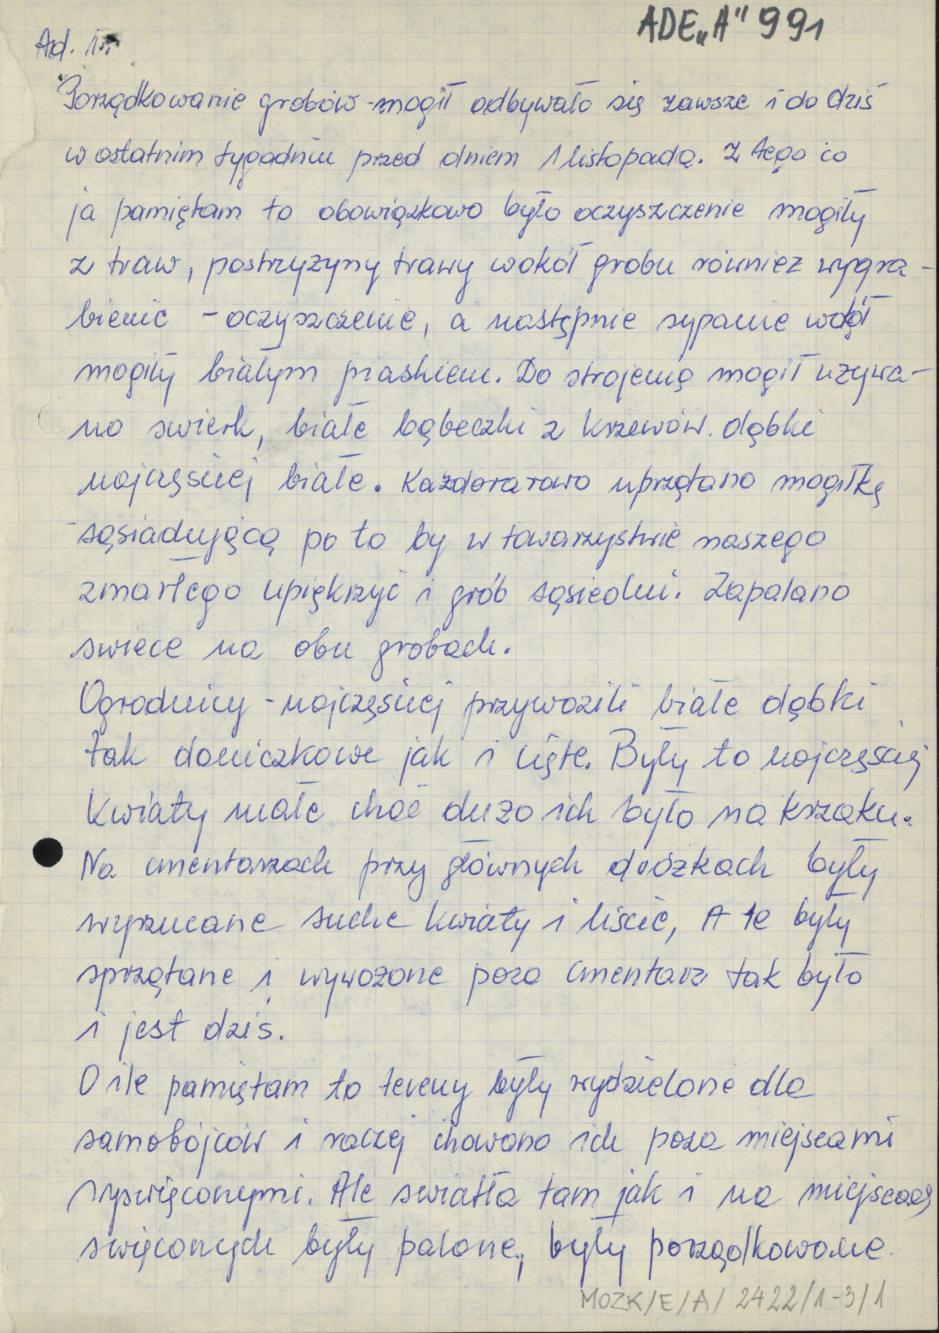 ADE„A" 991
Ad. 1.
Porządkowanie grobów-mogił odbywało się zawsze i do dziś
w ostatnim tygodniu przed dniem 1 listopada. Z tego co
ja pamiętam to obowiązkowo było oczyszczenie mogiły
z traw, postrzyżyny trawy wokół grobu również wygra-
bienie - oczyszczenie, a następnie sypanie wokół
mogiły białym piaskiem. Do strojenia mogił używa-
no świerk, białe bąbeczki z krzewów. dąbki
najczęściej białe. Każdorazowo uprzątano mogiłkę
sąsiadującą po to by w towarzystwie naszego
zmarłego upiększyć i grób sąsiedni. Zapalano
świece na obu grobach.
Ogrodnicy - najczęściej przywozili białe dąbki
tak doniczkowe jak i cięte. Były to najczęściej
kwiaty małe choć dużo ich było na krzaku.
Na cmentarzach przy głównych dróżkach były
wyrzucane suche kwiaty i liście, A te były
sprzątane i wywożone poza cmentarz tak było
i jest dziś.
O ile pamiętam to tereny były wydzielone dla
samobójców i raczej chowano ich poza miejscami
wyświęconymi. Ale światła tam jak i na miejscach
święconych były palone, były porządkowane.
MOZK/E/A/2422/1-3/1